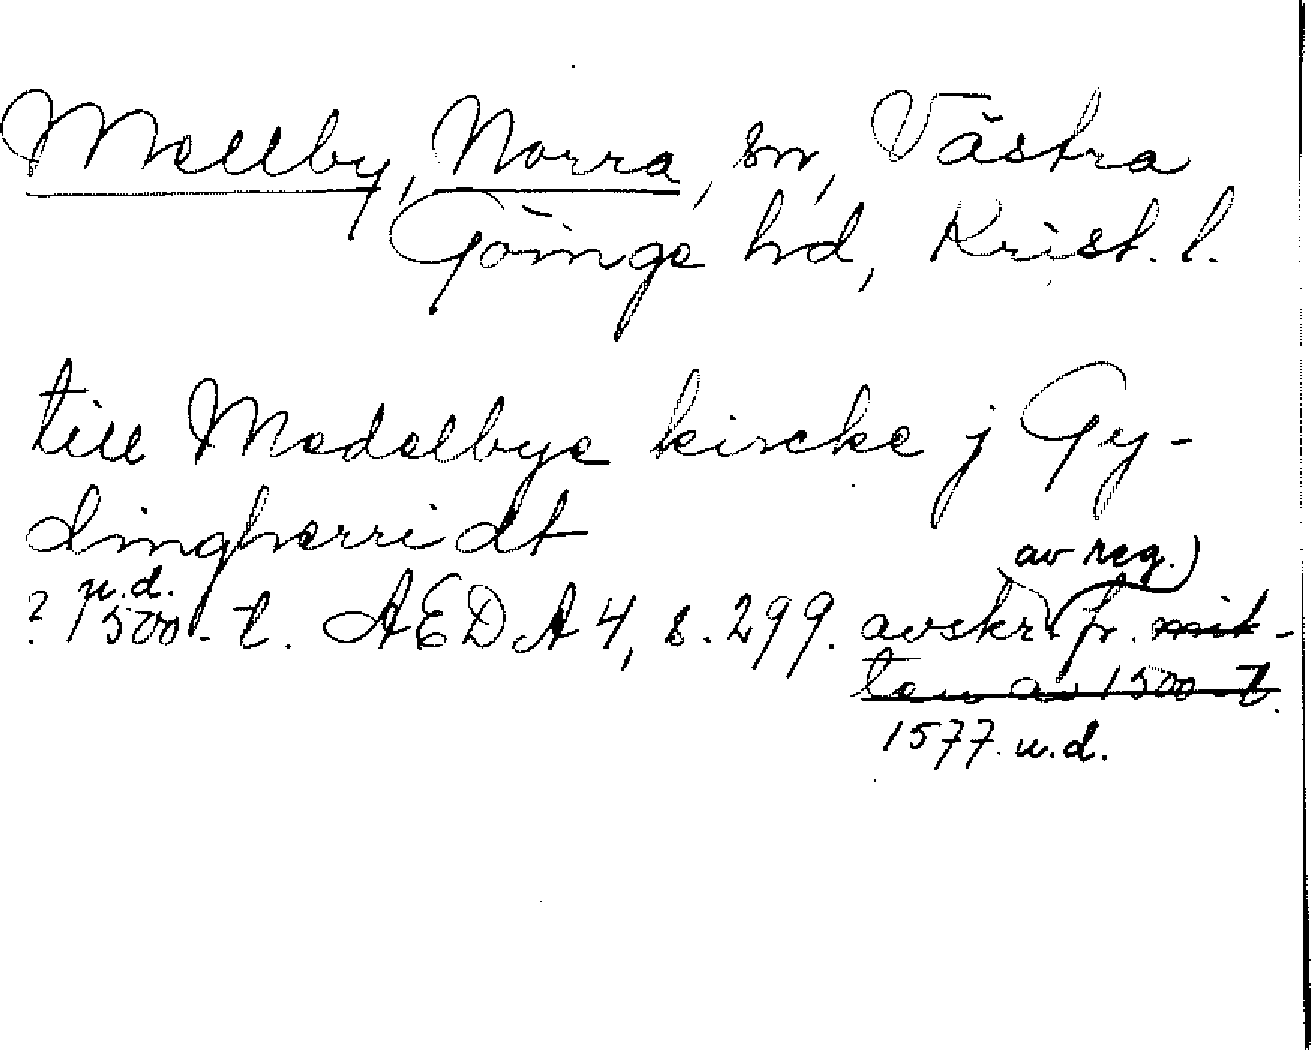 Mellby, Norra, sn, Västra
Göinge hd, Krist. l.
till Medelbye kircke j Gy-
dingherridt
av reg.)
u.d.
? 1500-t. AEDA 4, s. 299. avskr. fr. mit-
ten av 1500-t.
1577 u.d.